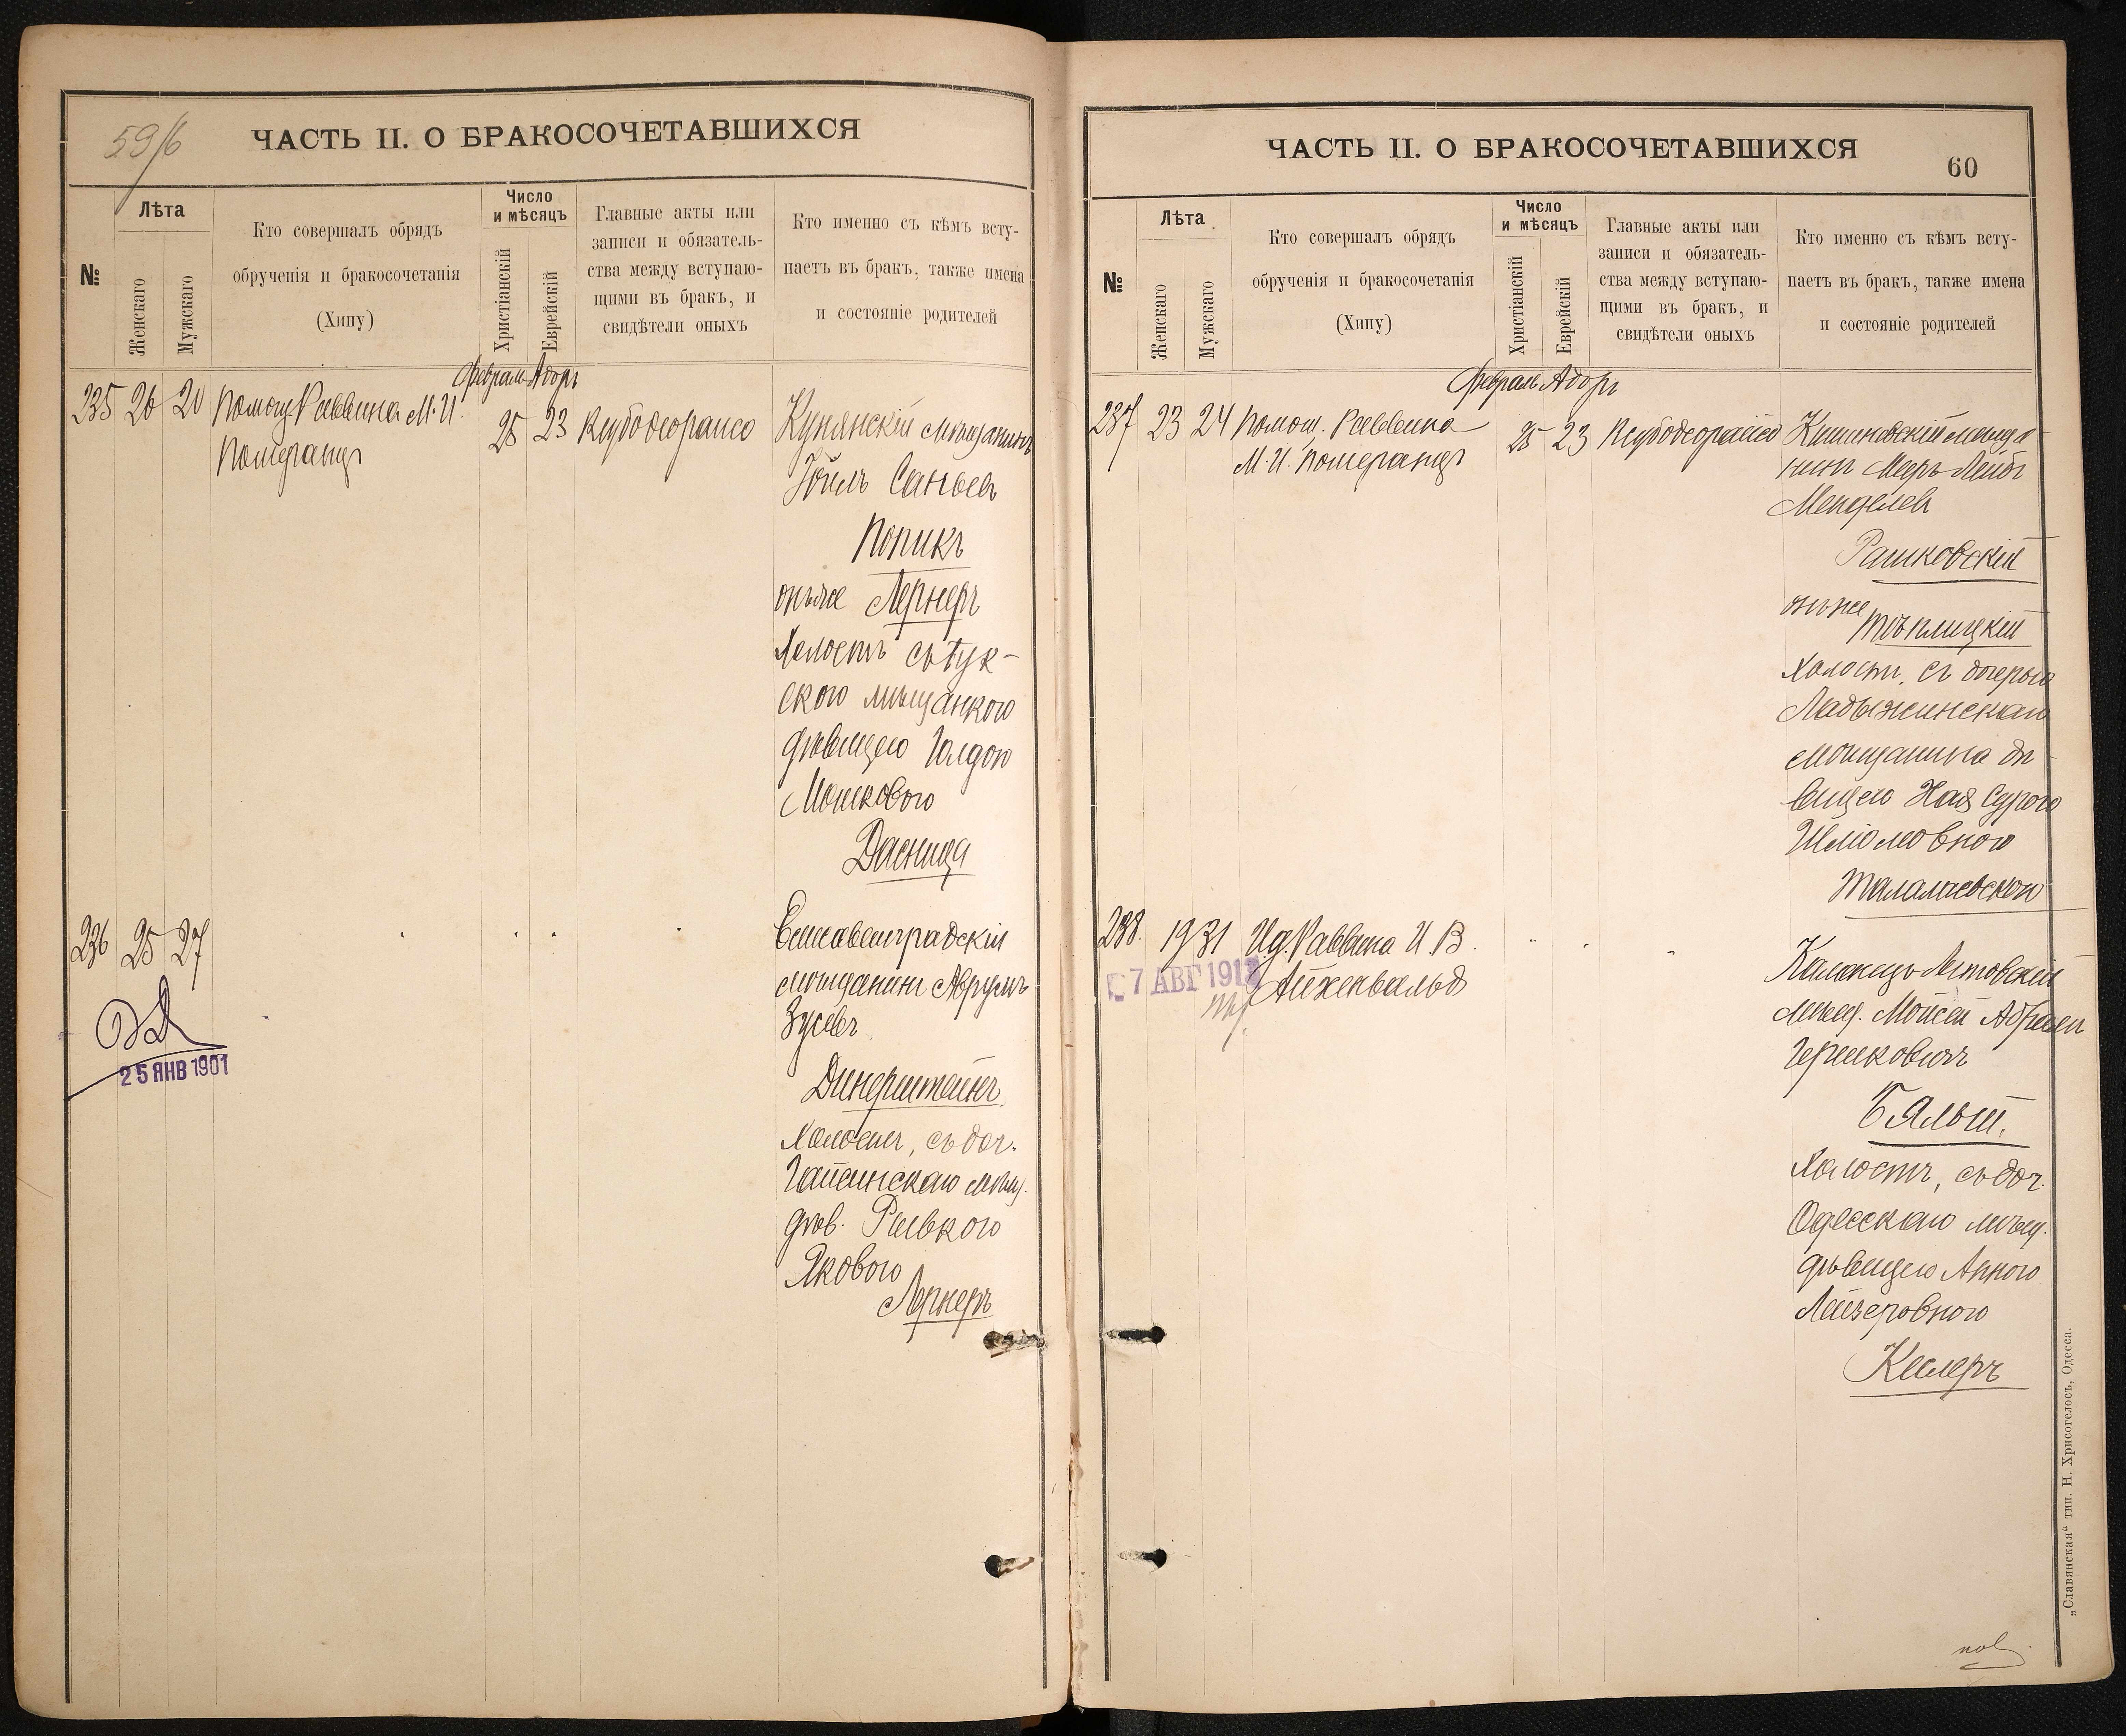 59/б
ЧАСТЬ II. О БРАКОСОЧЕТАВШИХСЯ
№
Лѣта
Женскаго
Мужскаго
Кто совершалъ обрядъ
обрученія и бракосочетанія
(Хипу)
Число
и мѣсяцъ
Христіанскій
Еврейскій
Главные акты или
записи и обязатель-
ства между вступаю-
щими въ бракъ, и
свидѣтели оныхъ
Кто именно съ кѣмъ всту-
паетъ въ бракъ, также имена
и состояніе родителей
Февраль Адоръ
235 20 20 Помощ. Раввина М. И.
Померанцъ
25 23
Купянскій мѣщанинъ
Іоиль Саньевъ
Попикъ
онъ же Лернеръ
Холостъ съ
ского мѣщанкою
дѣвицею Голдою
Мошковою
Дасница
236 25 27
Елисаветградскій
мѣщанинъ Аврумъ
Зусевъ
Динерштейнъ
Холостъ, съ доч.
Гайсинскаго мѣщ.
дѣв. Ривкою
Яковою
Лернеръ
25 ЯНВ 1901
ЧАСТЬ II. О БРАКОСОЧЕТАВШИХСЯ
60
№
Лѣта
Женскаго
Мужскаго
Кто совершалъ обрядъ
обрученія и бракосочетанія
(Хипу)
Число
и мѣсяцъ
Христіанскій
Еврейскій
Главные акты или
записи и обязатель-
ства между вступаю-
щими въ бракъ, и
свидѣтели оныхъ
Кто именно съ кѣмъ всту-
паетъ въ бракъ, также имена
и состояніе родителей
Февраль Адоръ
237 23 24 Помощ. Раввина
М. И. Померанцъ
25 23
Кишиневскій мѣща-
нинъ Меръ Лейбъ
Менделевъ
Рашковскій
онъ же
Тѣплицкій
Холостъ, съ дочерью
Ладыжинскаго
мѣщанина дѣ-
вицею Хая Сурою
Шліомовною
Талалаевскою
238. 19 31 И. д. Раввина И. В.
Айхенвальд
7 АВГ 191
Каменецъ Литовскій
мѣщ. Мойсей Абрамъ
Гершковичъ
Бялыш.
Холостъ, съ доч.
Одесскаго мѣщ.
дѣвицею Анною
Лейзеровною
Кеслеръ
„Славянская“ тип. Н. Хрисогелосъ, Одесса.